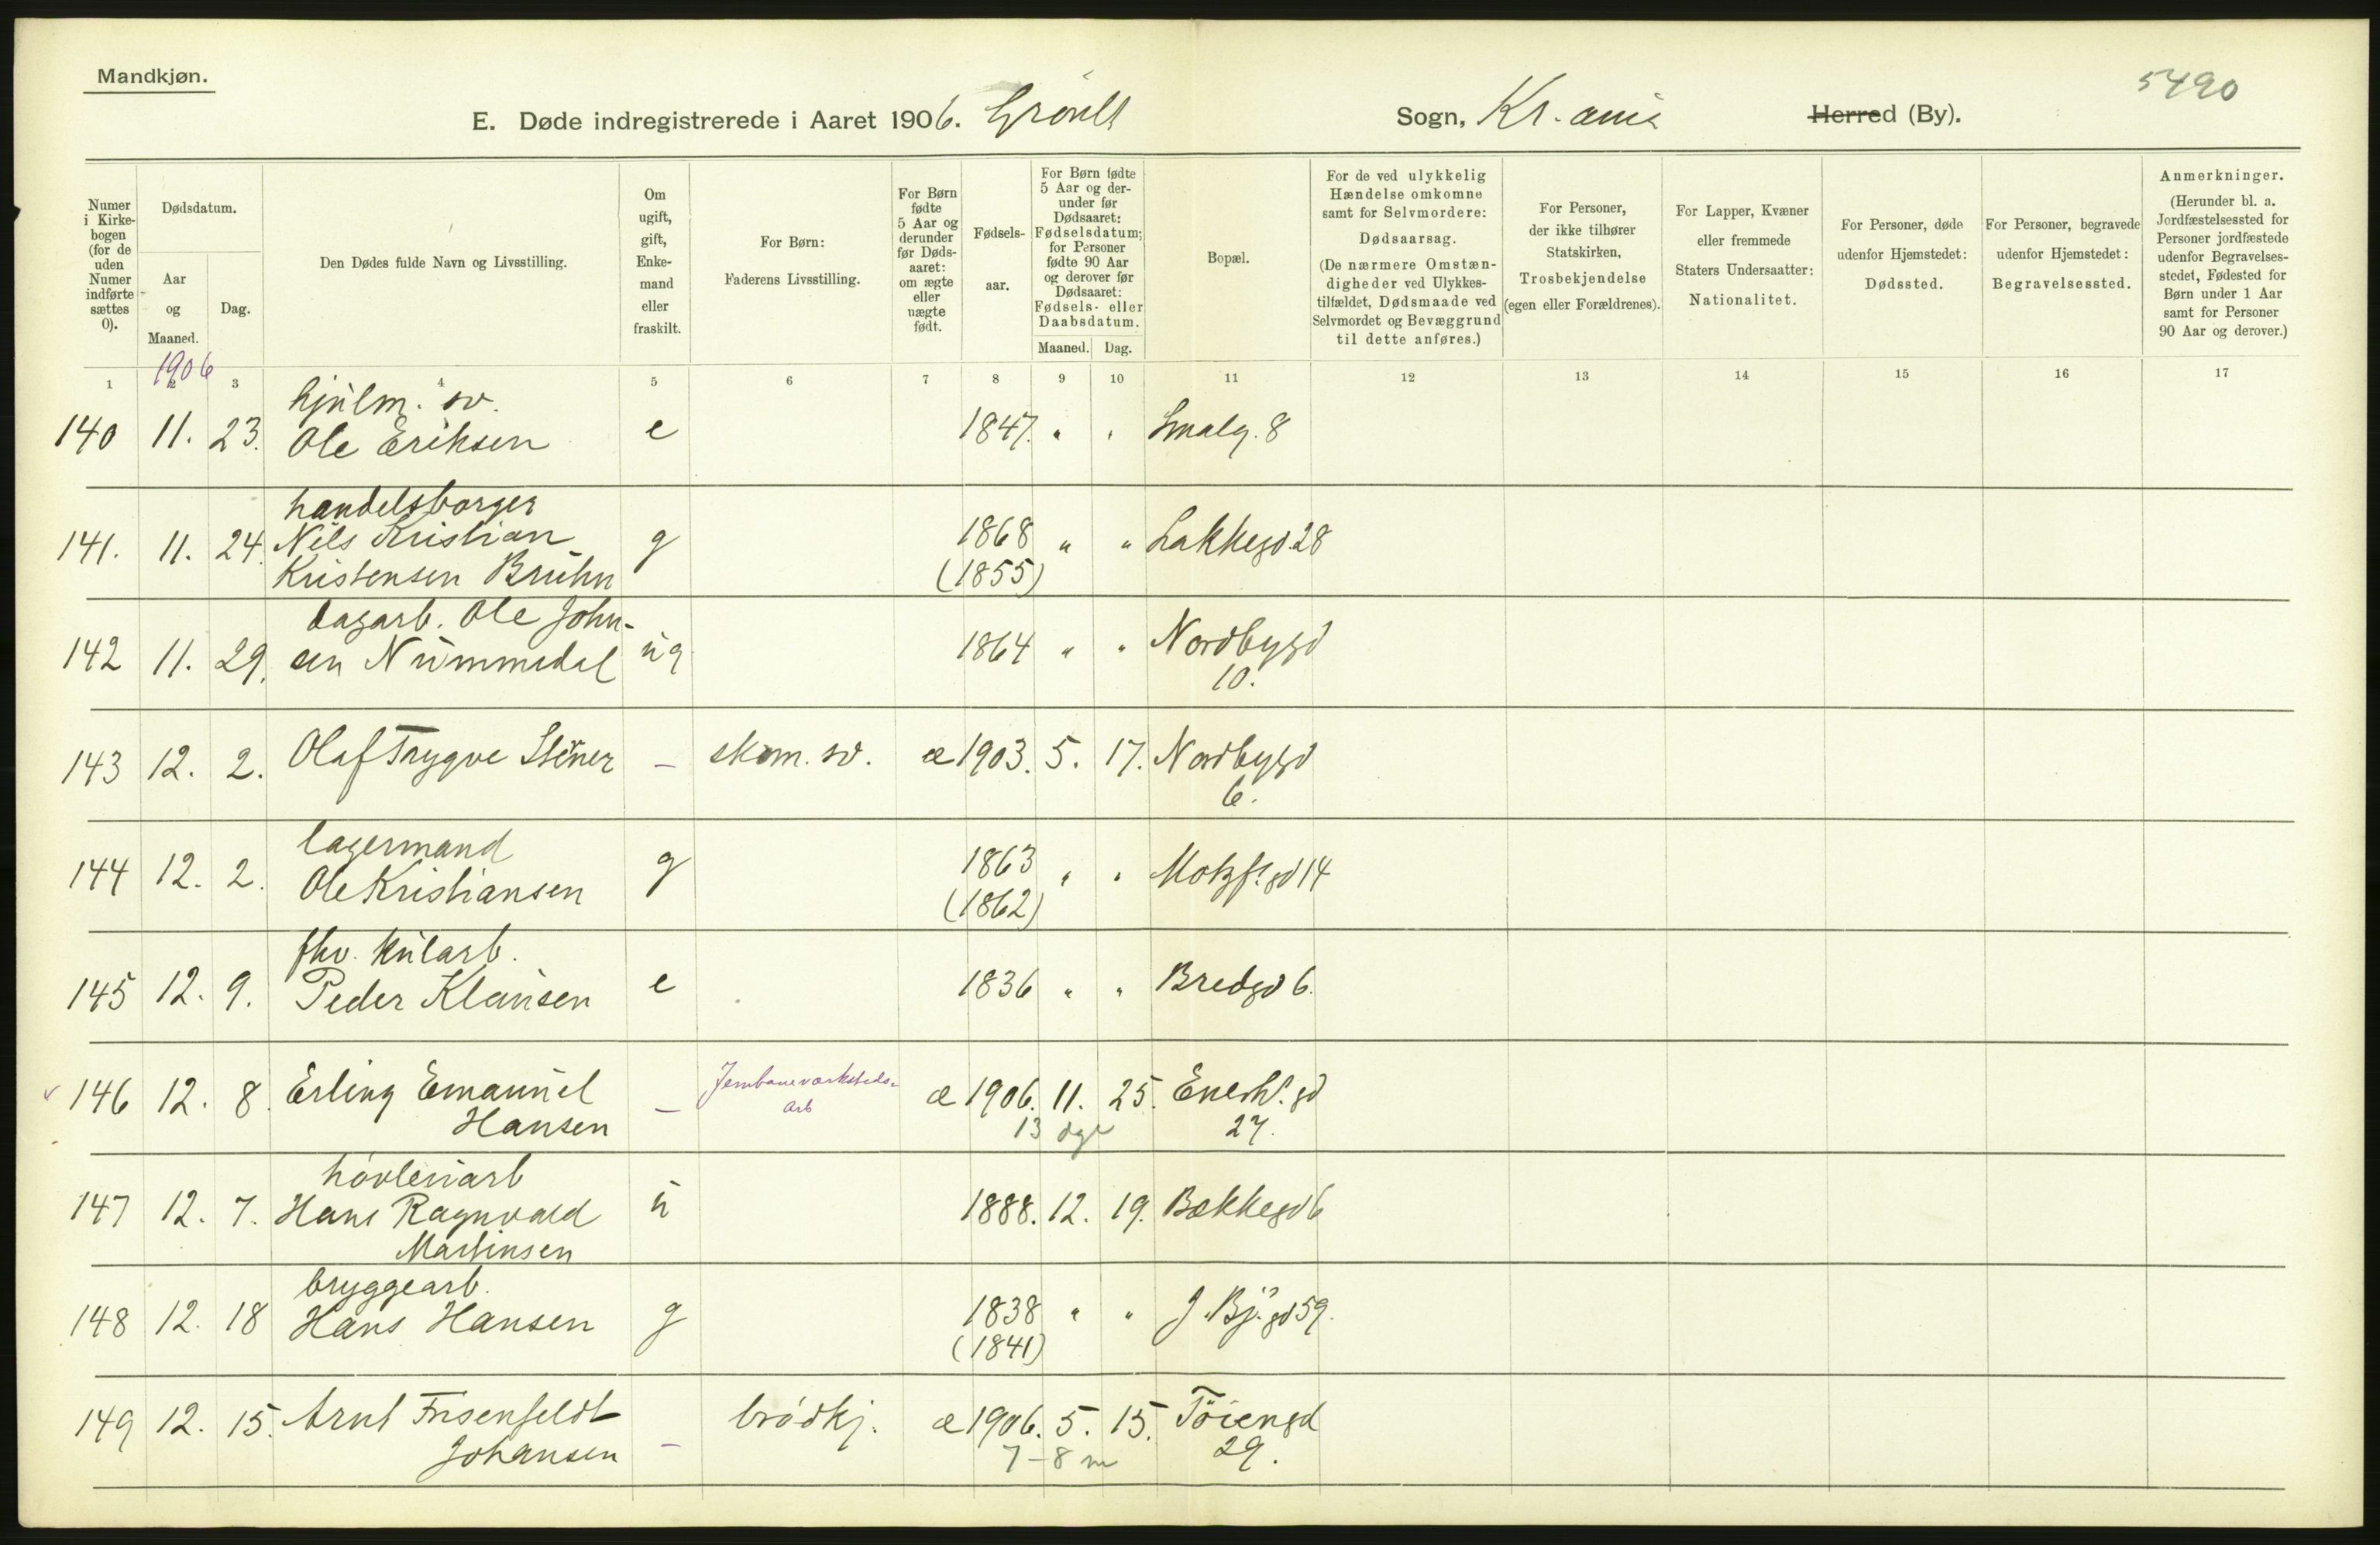 Mandkjøn.
5490
E. Døde indregistrerede i Aaret 1906. Grønld Sogn, Kr.ania Herred (By).
Numer i Kirkebogen (for de uden Numer indførte sættes 0).
Dødsdatum.
Aar og Maaned.
Dag.
Den Dødes fulde Navn og Livsstilling.
Om ugift, gift, Enkemand eller fraskilt.
For Børn: Faderens Livsstilling.
For Børn fødte 5 Aar og derunder før Dødsaaret: om ægte eller uægte født.
Fødselsaar.
For Børn fødte 5 Aar og derunder før Dødsaaret: Fødselsdatum; for Personer fødte 90 Aar og derover før Dødsaaret: Fødsels- eller Daabsdatum.
Maaned. Dag.
Bopæl.
For de ved ulykkelig Hændelse omkomne samt for Selvmordere: Dødsaarsag. (De nærmere Omstændigheder ved Ulykkestilfældet, Dødsmaade ved Selvmordet og Bevæggrund til dette anføres.)
For Personer, der ikke tilhører Statskirken, Trosbekjendelse (egen eller Forældrenes).
For Lapper, Kvæner eller fremmede Staters Undersaatter: Nationalitet.
For Personer, døde udenfor Hjemstedet: Dødssted.
For Personer, begravede udenfor Hjemstedet: Begravelsessted.
Anmerkninger. (Herunder bl. a. Jordfæstelsessted for Personer jordfæstede udenfor Begravelsesstedet, Fødested for Børn under 1 Aar samt for Personer 90 Aar og derover.)
1 2 3 4 5 6 7 8 9 10 11 12 13 14 15 16 17
1906
hjulm. sv.
140 11. 23. Ole Eriksen e 1847. " " Smalg. 8
handelsborger
141. 11. 24. Nils Kristian g 1868 " " Lakkegd. 28
Kristensen Bruhn (1855)
dagarb. Ole John-
142 11. 29. sen Nummedal ug 1864 " " Nordbygd
10.
143 12. 2. Olaf Trygve Stener – skom. sv. æ 1903. 5. 17. Nordbygd
6.
lagermand
144 12. 2. Ole Kristiansen g 1863 " " Motzf.gd 14
(1862)
fhv. kularb.
145 12. 9. Peder Klausen e 1836 " " Bredgd 6.
146 12. 8. Erling Emanuel – Jernbaneværksteds- æ 1906. 11. 25. Enerh.gd
Hansen arb 13 dge 27.
høvleriarb
147 12. 7. Hans Ragnvald u 1888. 12. 19. Bakkegd 6
Martinsen
bryggearb.
148 12. 18 Hans Hansen g 1838 " " J. Bj. gd 59.
(1841)
149 12. 15. Arnt Frisenfeldt – brødkj. æ 1906. 5. 15. Tøiengd
Johansen 7-8 m 29.